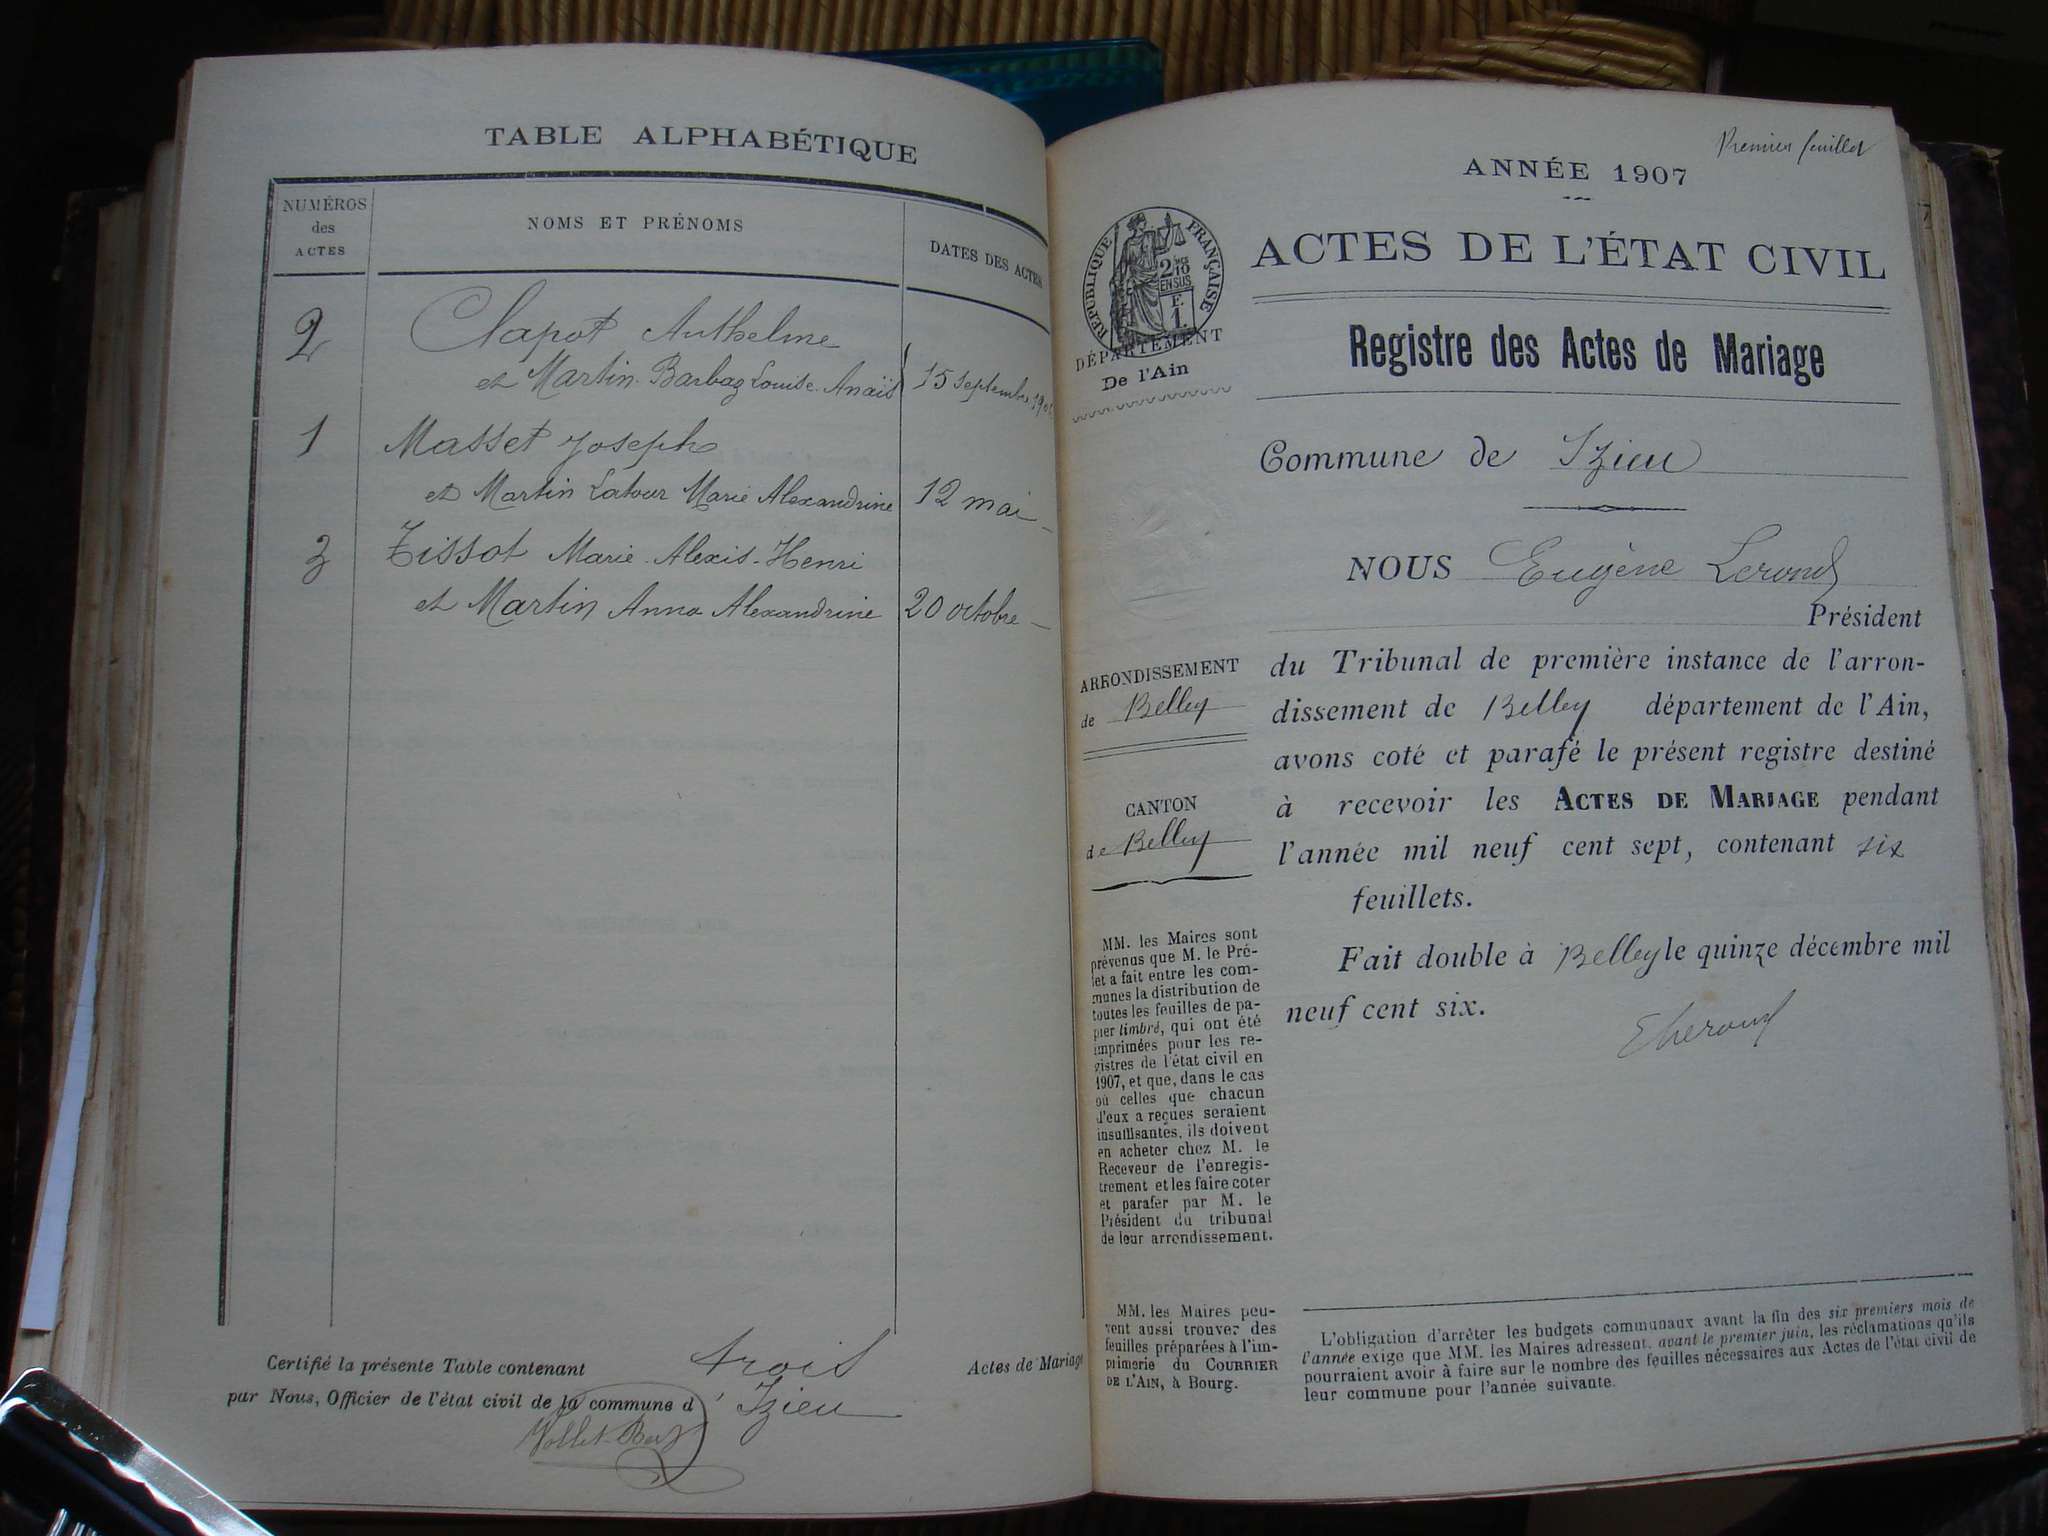 TABLE ALPHABÉTIQUE
NUMÉROS
des
ACTES
NOMS ET PRÉNOMS
DATES DES ACTES
2 Clapot Anthelme
et Martin-Barbaz Louise-Anaïs 15 septembre
1 Masset Joseph
et Martin Latour Marie Alexandrine 12 mai -
3 Tissot Marie-Alexis-Henri
et Martin Anna Alexandrine 20 octobre -
Certifié la présente Table contenant trois Actes de Mariage
par Nous, Officier de l'état civil de la commune d'Izieu
Premier feuillet
ANNÉE 1907
ACTES DE L'ÉTAT CIVIL
RÉPUBLIQUE FRANÇAISE
2/10
EN SUS
F.
1.
DÉPARTEMENT
De l'Ain
Registre des Actes de Mariage
Commune de Izieu
NOUS Eugène Lerond
Président
du Tribunal de première instance de l'arron-
dissement de Belley département de l'Ain,
avons coté et parafé le présent registre destiné
à recevoir les ACTES DE MARIAGE pendant
l'année mil neuf cent sept, contenant six
feuillets.
Fait double à Belley le quinze décembre mil
neuf cent six.
ARRONDISSEMENT
de Belley
CANTON
de Belley
MM. les Maires sont
prévenus que M. le Pré-
fet a fait entre les com-
munes la distribution de
toutes les feuilles de pa-
pier timbré, qui ont été
imprimées pour les re-
gistres de l'état civil en
1907, et que, dans le cas
où celles que chacun
d'eux a reçues seraient
insuffisantes, ils doivent
en acheter chez M. le
Receveur de l'enregis-
trement et les faire coter
et parafer par M. le
Président du tribunal
de leur arrondissement.
MM. les Maires peu-
vent aussi trouver des
feuilles préparées à l'im-
primerie du COURRIER
DE L'AIN, à Bourg.
L'obligation d'arrêter les budgets communaux avant la fin des six premiers mois de
l'année exige que MM. les Maires adressent, avant le premier juin, les réclamations qu'ils
pourraient avoir à faire sur le nombre des feuilles nécessaires aux Actes de l'état civil de
leur commune pour l'année suivante.